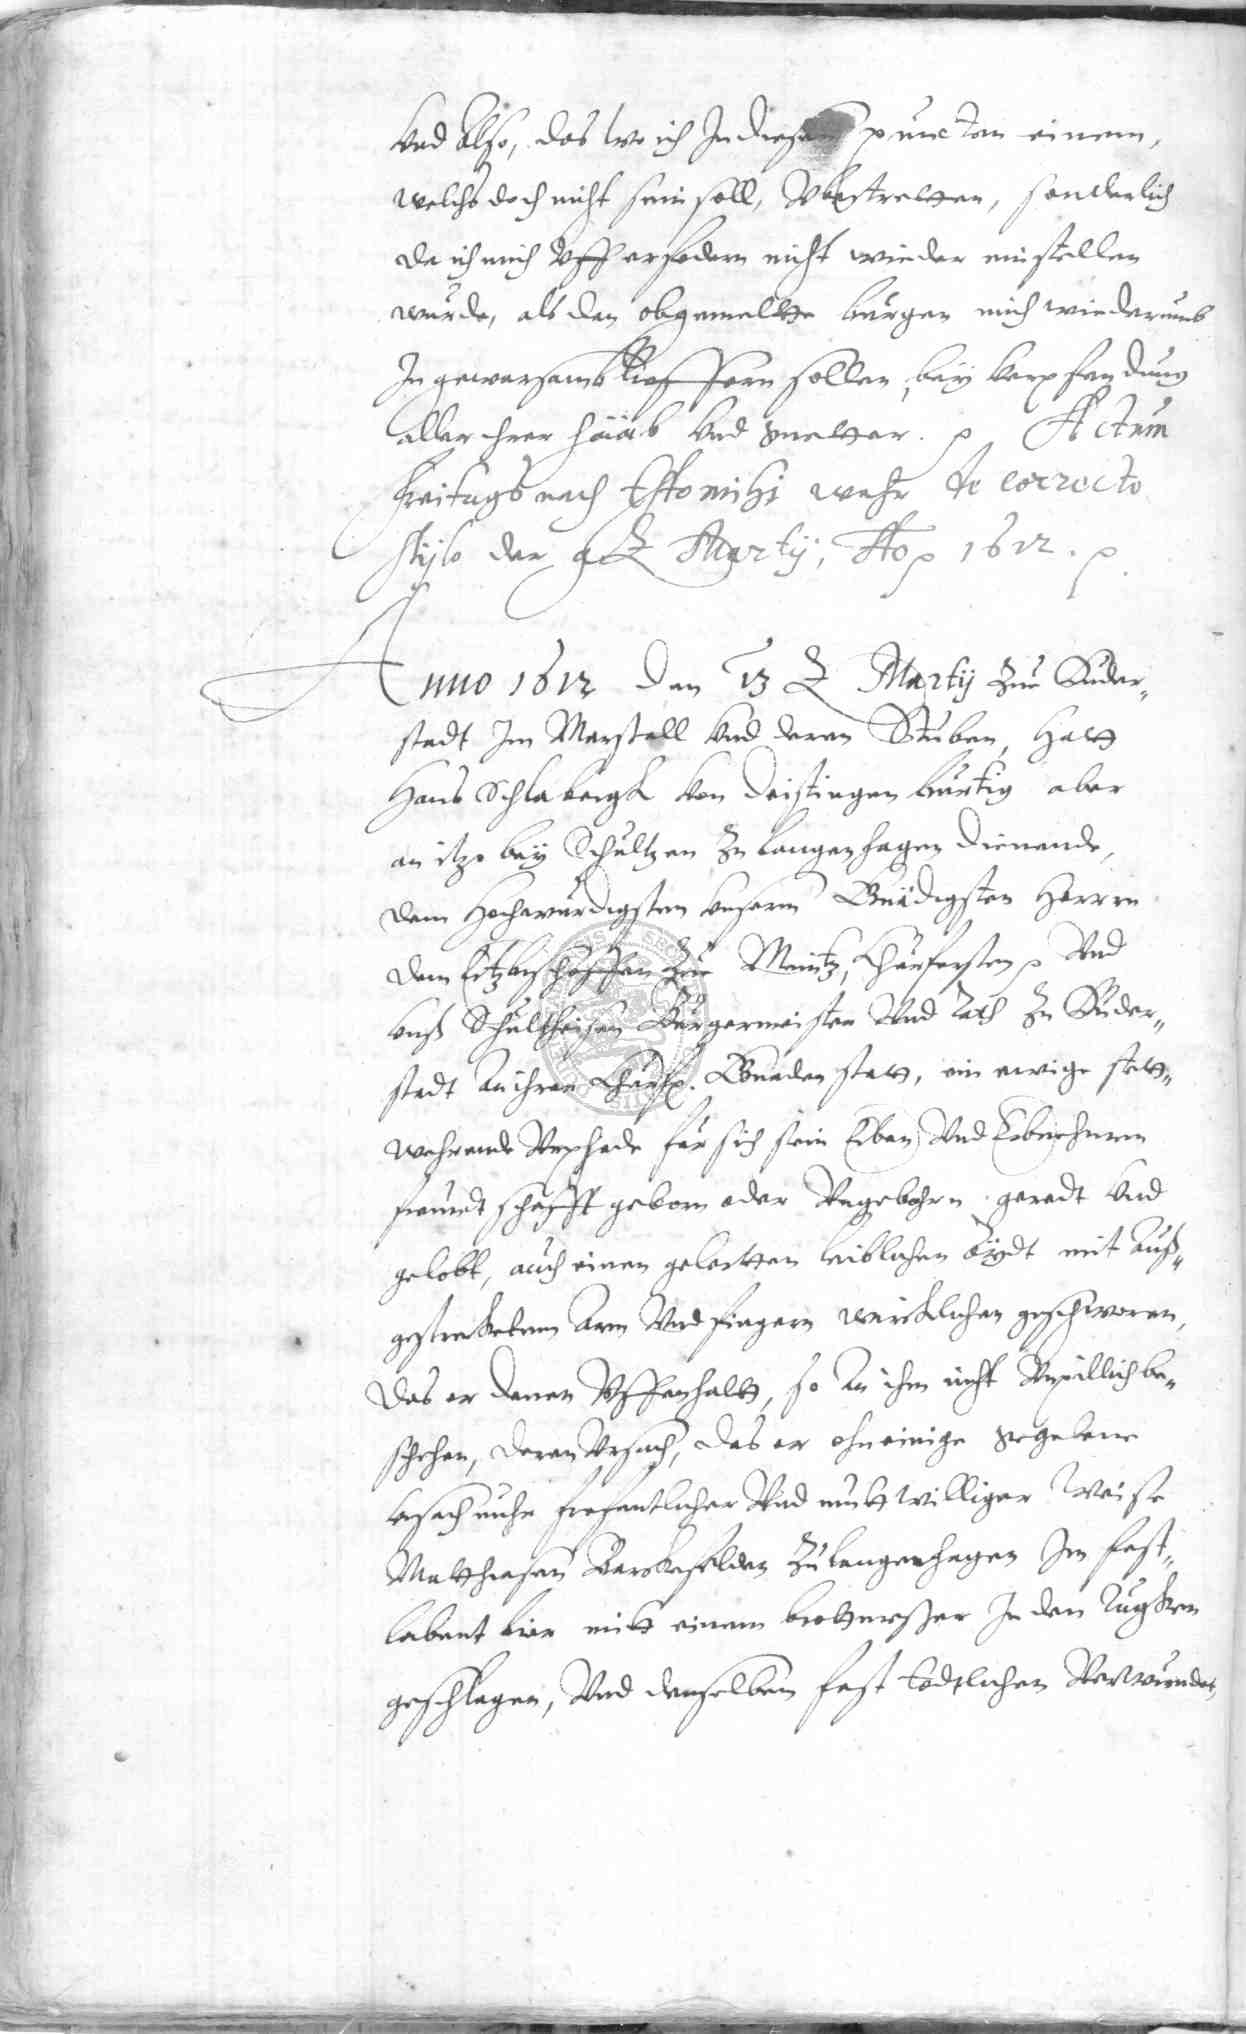 Vnd Also, das wo ich In diesem puncten einem,
welchs doch nicht sein soll, Vbertretten, sonderlich
da ich mich Vff erfodern nicht wieder einstellen
würde, als dan obgemelte bürgen mich wiederumb
In gewarsamb liefffern sollen, bey verpfendung
aller ihrer Haab vnd guetter. p Actum
Freitags nach Estomihi wahr de correcto
stylo der 9 t Martij, Ao p 1612. p
Anno 1612 den 13 t Martij Zue Duder„
stadt Im Marstall Vnd deren Stuben, Hatt
Hans Schlabergk von Deistingen bürtig aber
an itzo bey Schultzen Zu Langenhagen dienende,
dem Hochwürdigsten Vnserm Gnädigsten Herrn
dem Ertzbischoffen Zue Meintz, Churfürsten p Vnd
Vnß Schultheisen Bürgermeister Vnd Rath Zu Duder„
stadt An ihrer Churf. Gnaden statt, ein ewige stett„
wehrende Vrphede für sich sein Erben Vnd Erbnehmen
freundtschafft geborn oder Vngebohrn geredt Vnd
gelobt, auch einen gelertten leiblichen Eÿdt mit Auß„
gestrecketem Arm Vnd fingern würcklichen geschworen,
das er denen Vffenhaltt, so An ihm nicht Vnpillich be„
schehen, deren Vrsach, das er ohn einige gegebene
Vrsach frefentlicher Vnd muttwilliger Weise
Matthiesen Barckefelden Zu Langenhagen Im fast„
labent bier mitt einem brottmesser In den Rugken
geschlagen, Vnd denselben fast todtlichen Verwundet,